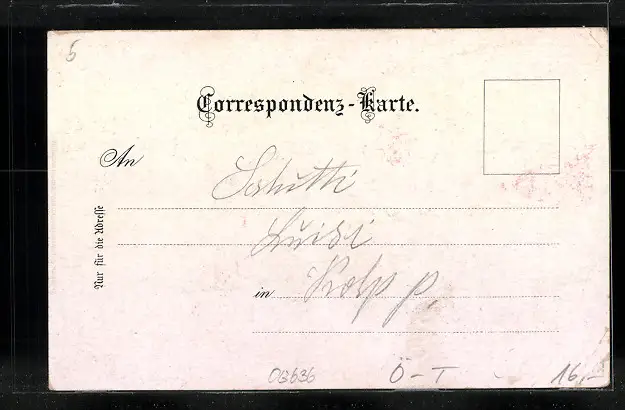 5
Correspondenz-Karte.
An
Salutti
Luisi
in
Nur für die Adresse
OG636
Ö-T
16,-